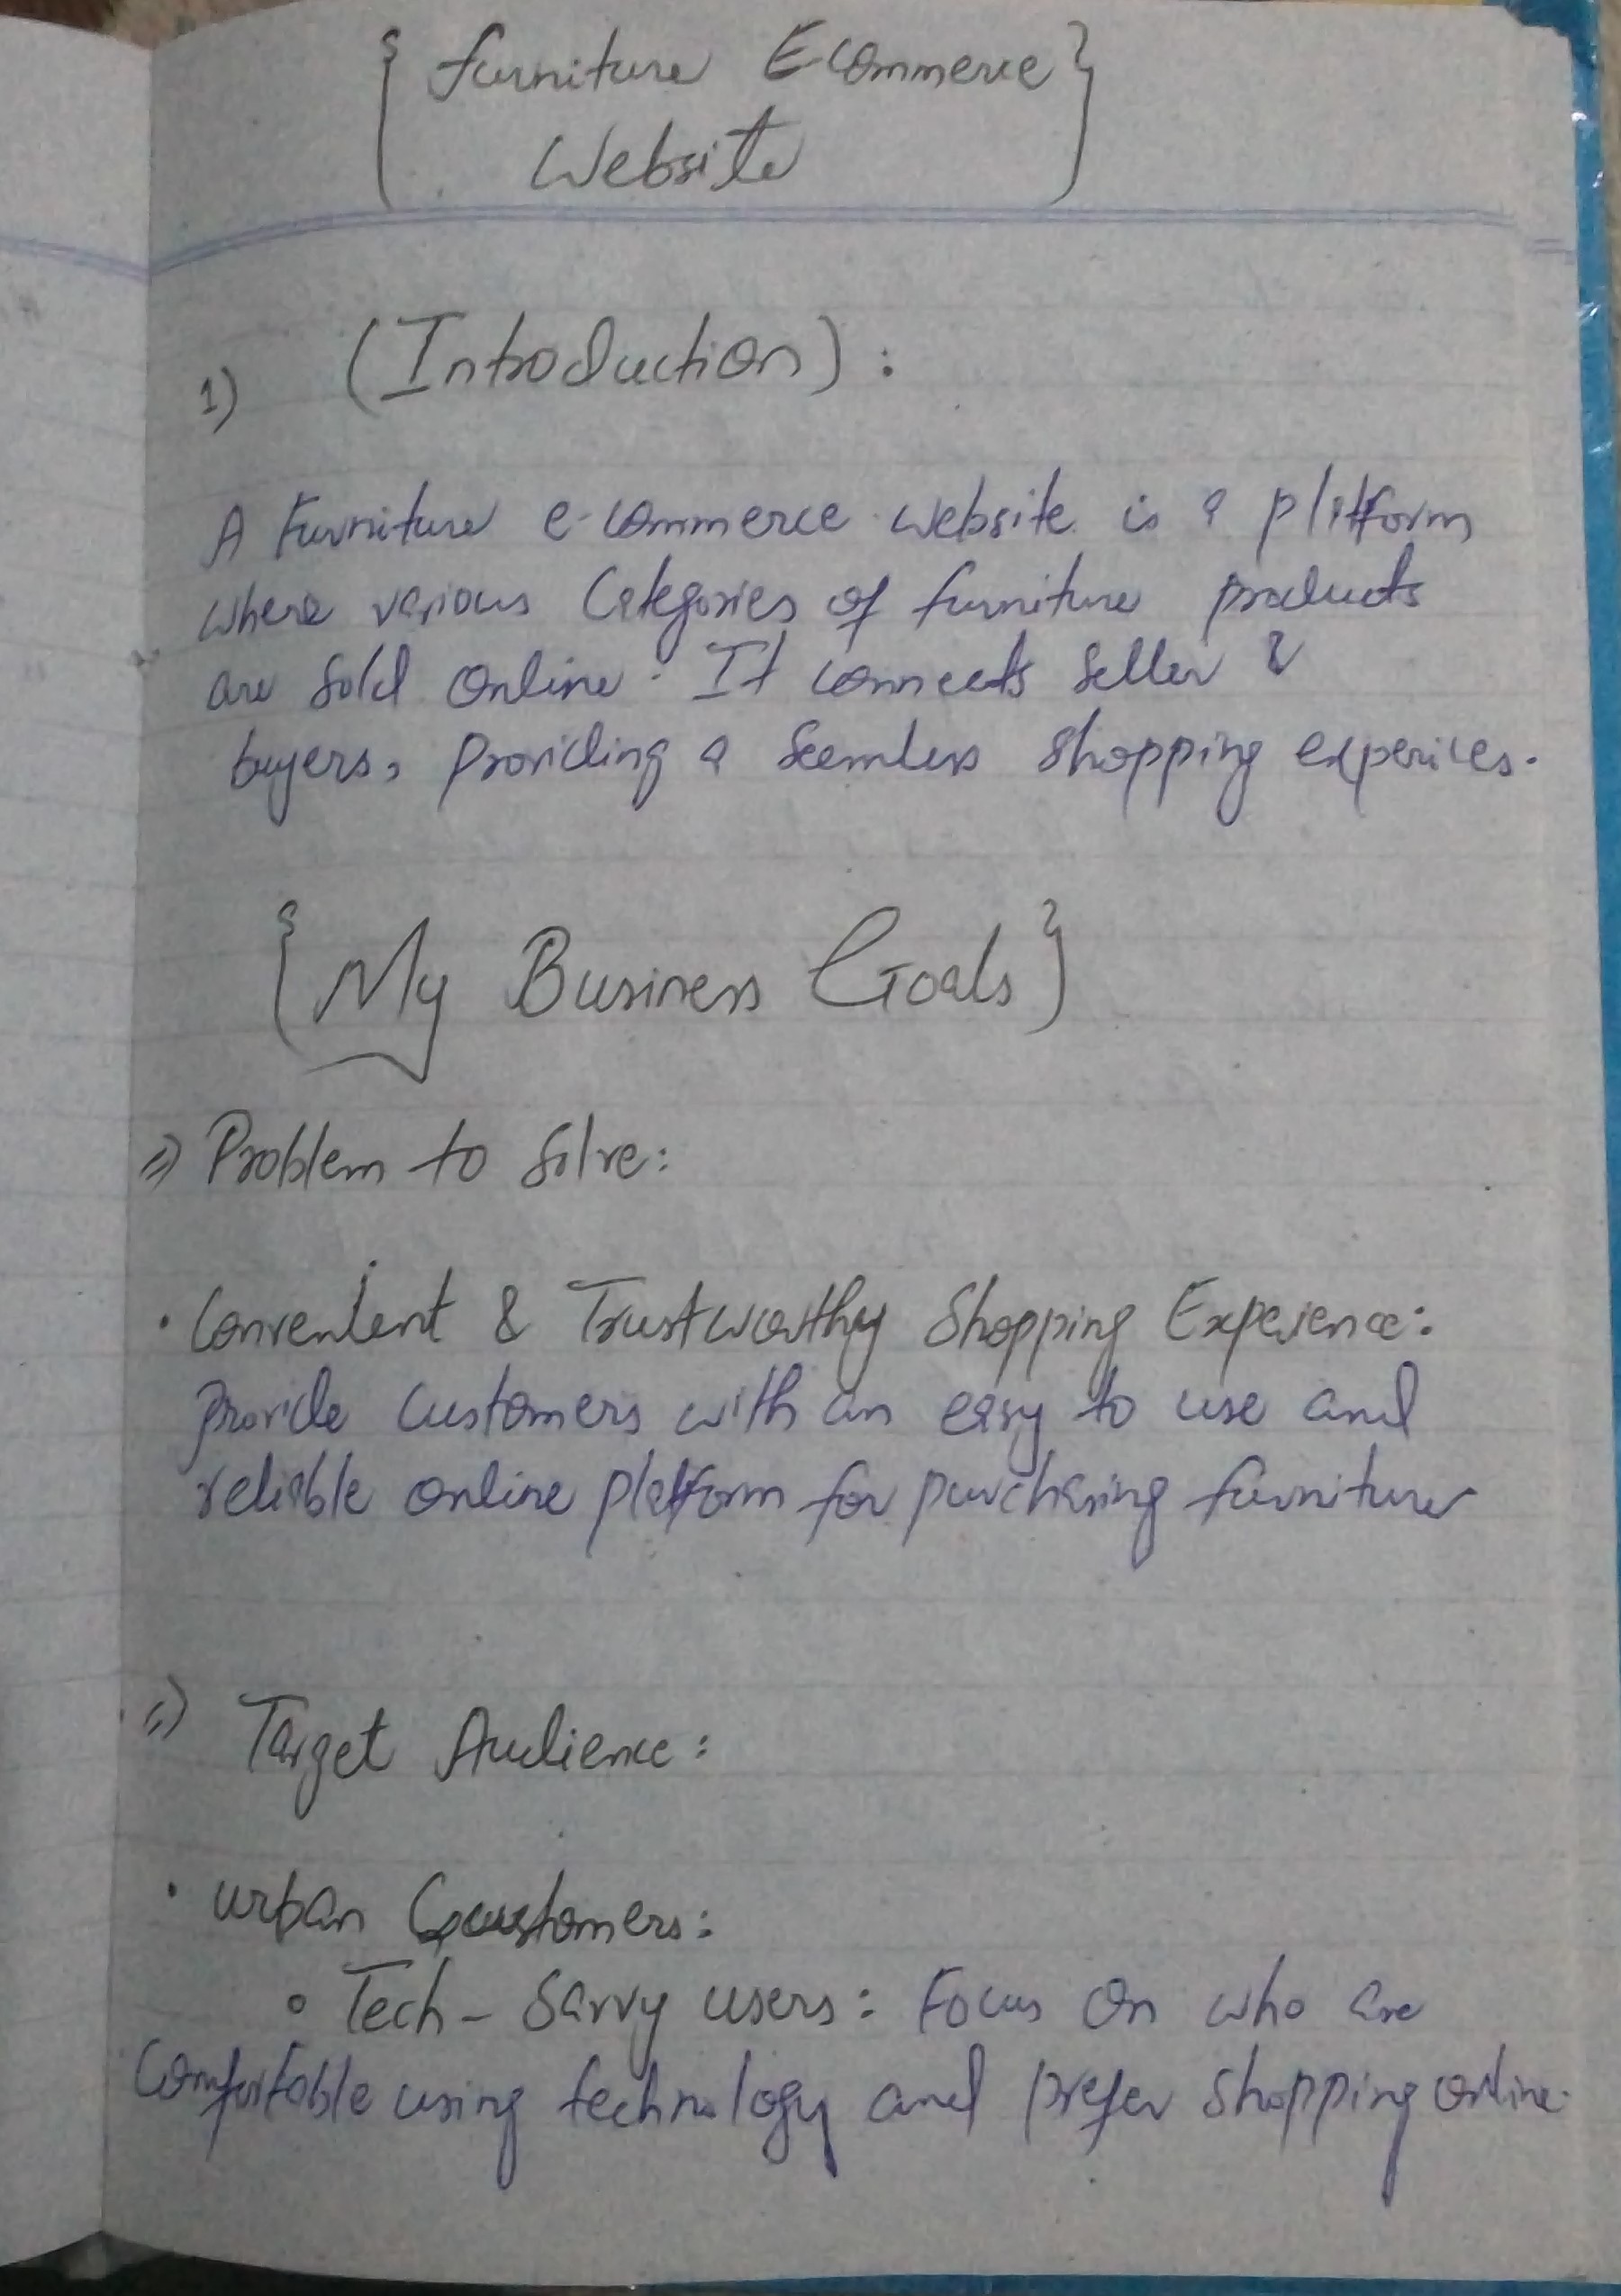 { Furniture E-Commerce }
Website
1) (Introduction) :
A Furniture e-commerce website is a platform
where various Categories of furniture products
are sold online. It connects seller &
buyers, providing a seemless shopping experices.
{ My Business Goals }
=) Problem to solve:
• Convenient & Trustworthy Shopping Experience:
provide customers with an easy to use and
reliable online platform for purchasing furniture
=) Target Audience :
• urban Customers :
◦ Tech - Savvy users : Focus on who are
Comfortable using technology and prefer shopping online.